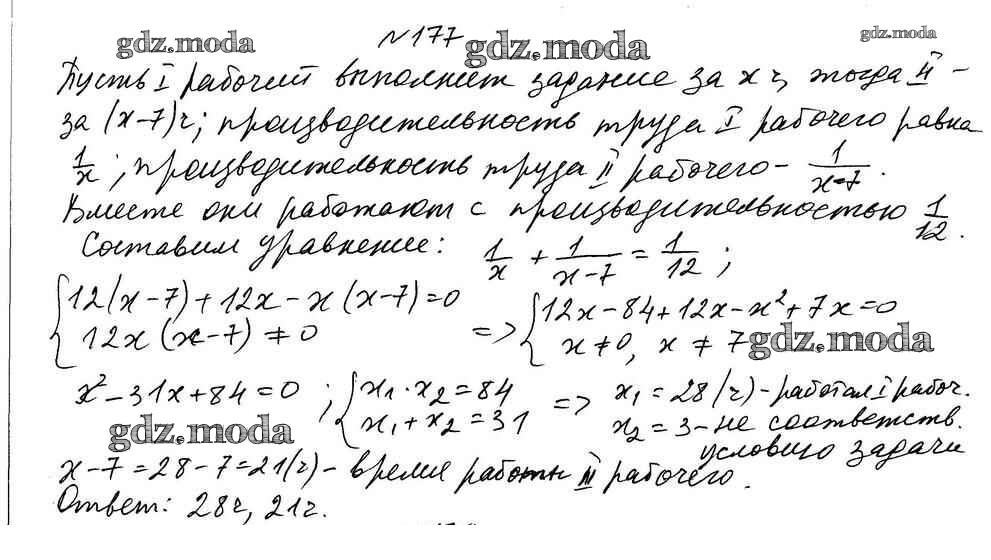 №177
Пусть I рабочий выполняет задание за x ч, тогда II –
за (x-7)ч; производительность труда I рабочего равна
1/x; производительность труда II рабочего - 1/(x-7).
Вместе они работают с производительностью 1/12.
Составим уравнение: 1/x + 1/(x-7) = 1/12;
{12(x-7)+12x-x(x-7)=0
12x(x-7)≠0 => {12x-84+12x-x²+7x=0
x≠0, x≠7
x²-31x+84=0; {x₁·x₂=84
x₁+x₂=31 => x₁=28(ч)-работал I рабоч.
x₂=3-не соответств.
условию задачи
x-7=28-7=21(ч)-время работы II рабочего.
Ответ: 28ч, 21ч.
gdz.moda
gdz.moda
gdz.moda
gdz.moda
gdz.moda